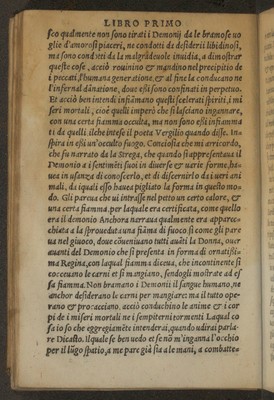 LIBRO PRIMO
sco qualmente non sono tirati i Demonij da le bramose uo
glie d'amorosi piaceri, ne condotti da desiderii libidinosi,
ma sono condotti da la malgradeuole inuidia, a dimostrar
queste cose, acciò rouinino & mandino nel precipitio de
i peccati, l'humana generatione, & al fine la conducano ne
l'infernal dānatione, doue essi sono confinati in perpetuo.
Et acciò ben intendi infiāmano questi scelerati spiriti, i mi
seri mortali, cioè quelli imperò che si lasciano ingannare,
con una certa fiamma occulta, ma non sono essi infiamma
ti da quelli. ilche intese il poeta Vergilio quando disse. In
spira in essi un'occulto fuogo. Conciosia che mi arricordo,
che fu narrato da la Strega, che quando si appresentaua il
Demonio a i sentimēti suoi in diuerse & uarie forme, ha
uea in usanza di conoscerlo, et di discernirlo da i ueri ani
mali, da iquali esso hauea pigliato la forma in questo mo
do. Gli pareua che ui intrasse nel petto un certo calore, &
una certa fiamma, per laquale era certificata, come quello
era il demonio Anchora narraua qualmente era apparec
chiata a la sproueduta una fiāma di fuoco si come gli pare
ua nel giuoco, doue cōueniuano tutti auāti la Donna, ouer
auanti del Demonio che si presenta in forma di ornatissi
ma Regina, con laqual fiamma diceua, che incontinente si
coceuano le carni et si mangiano, fendogli mostrate ad es
sa fiamma. Non bramano i Demonii il sangue humano, ne
anchor desiderano le carni per mangiare: ma il tutto ope
rano & procacciano, acciò conduchino le anime & i cor
pi de i miseri mortali ne i sempiterni tormenti Laqual co
sa io so che eggregiamēte intenderai, quando udirai parla-
re Dicasto. Ilquale se ben uedo et se nō m'inganna l'occhio
per il lūgo spatio, a me pare già sia ale mani, a combatte